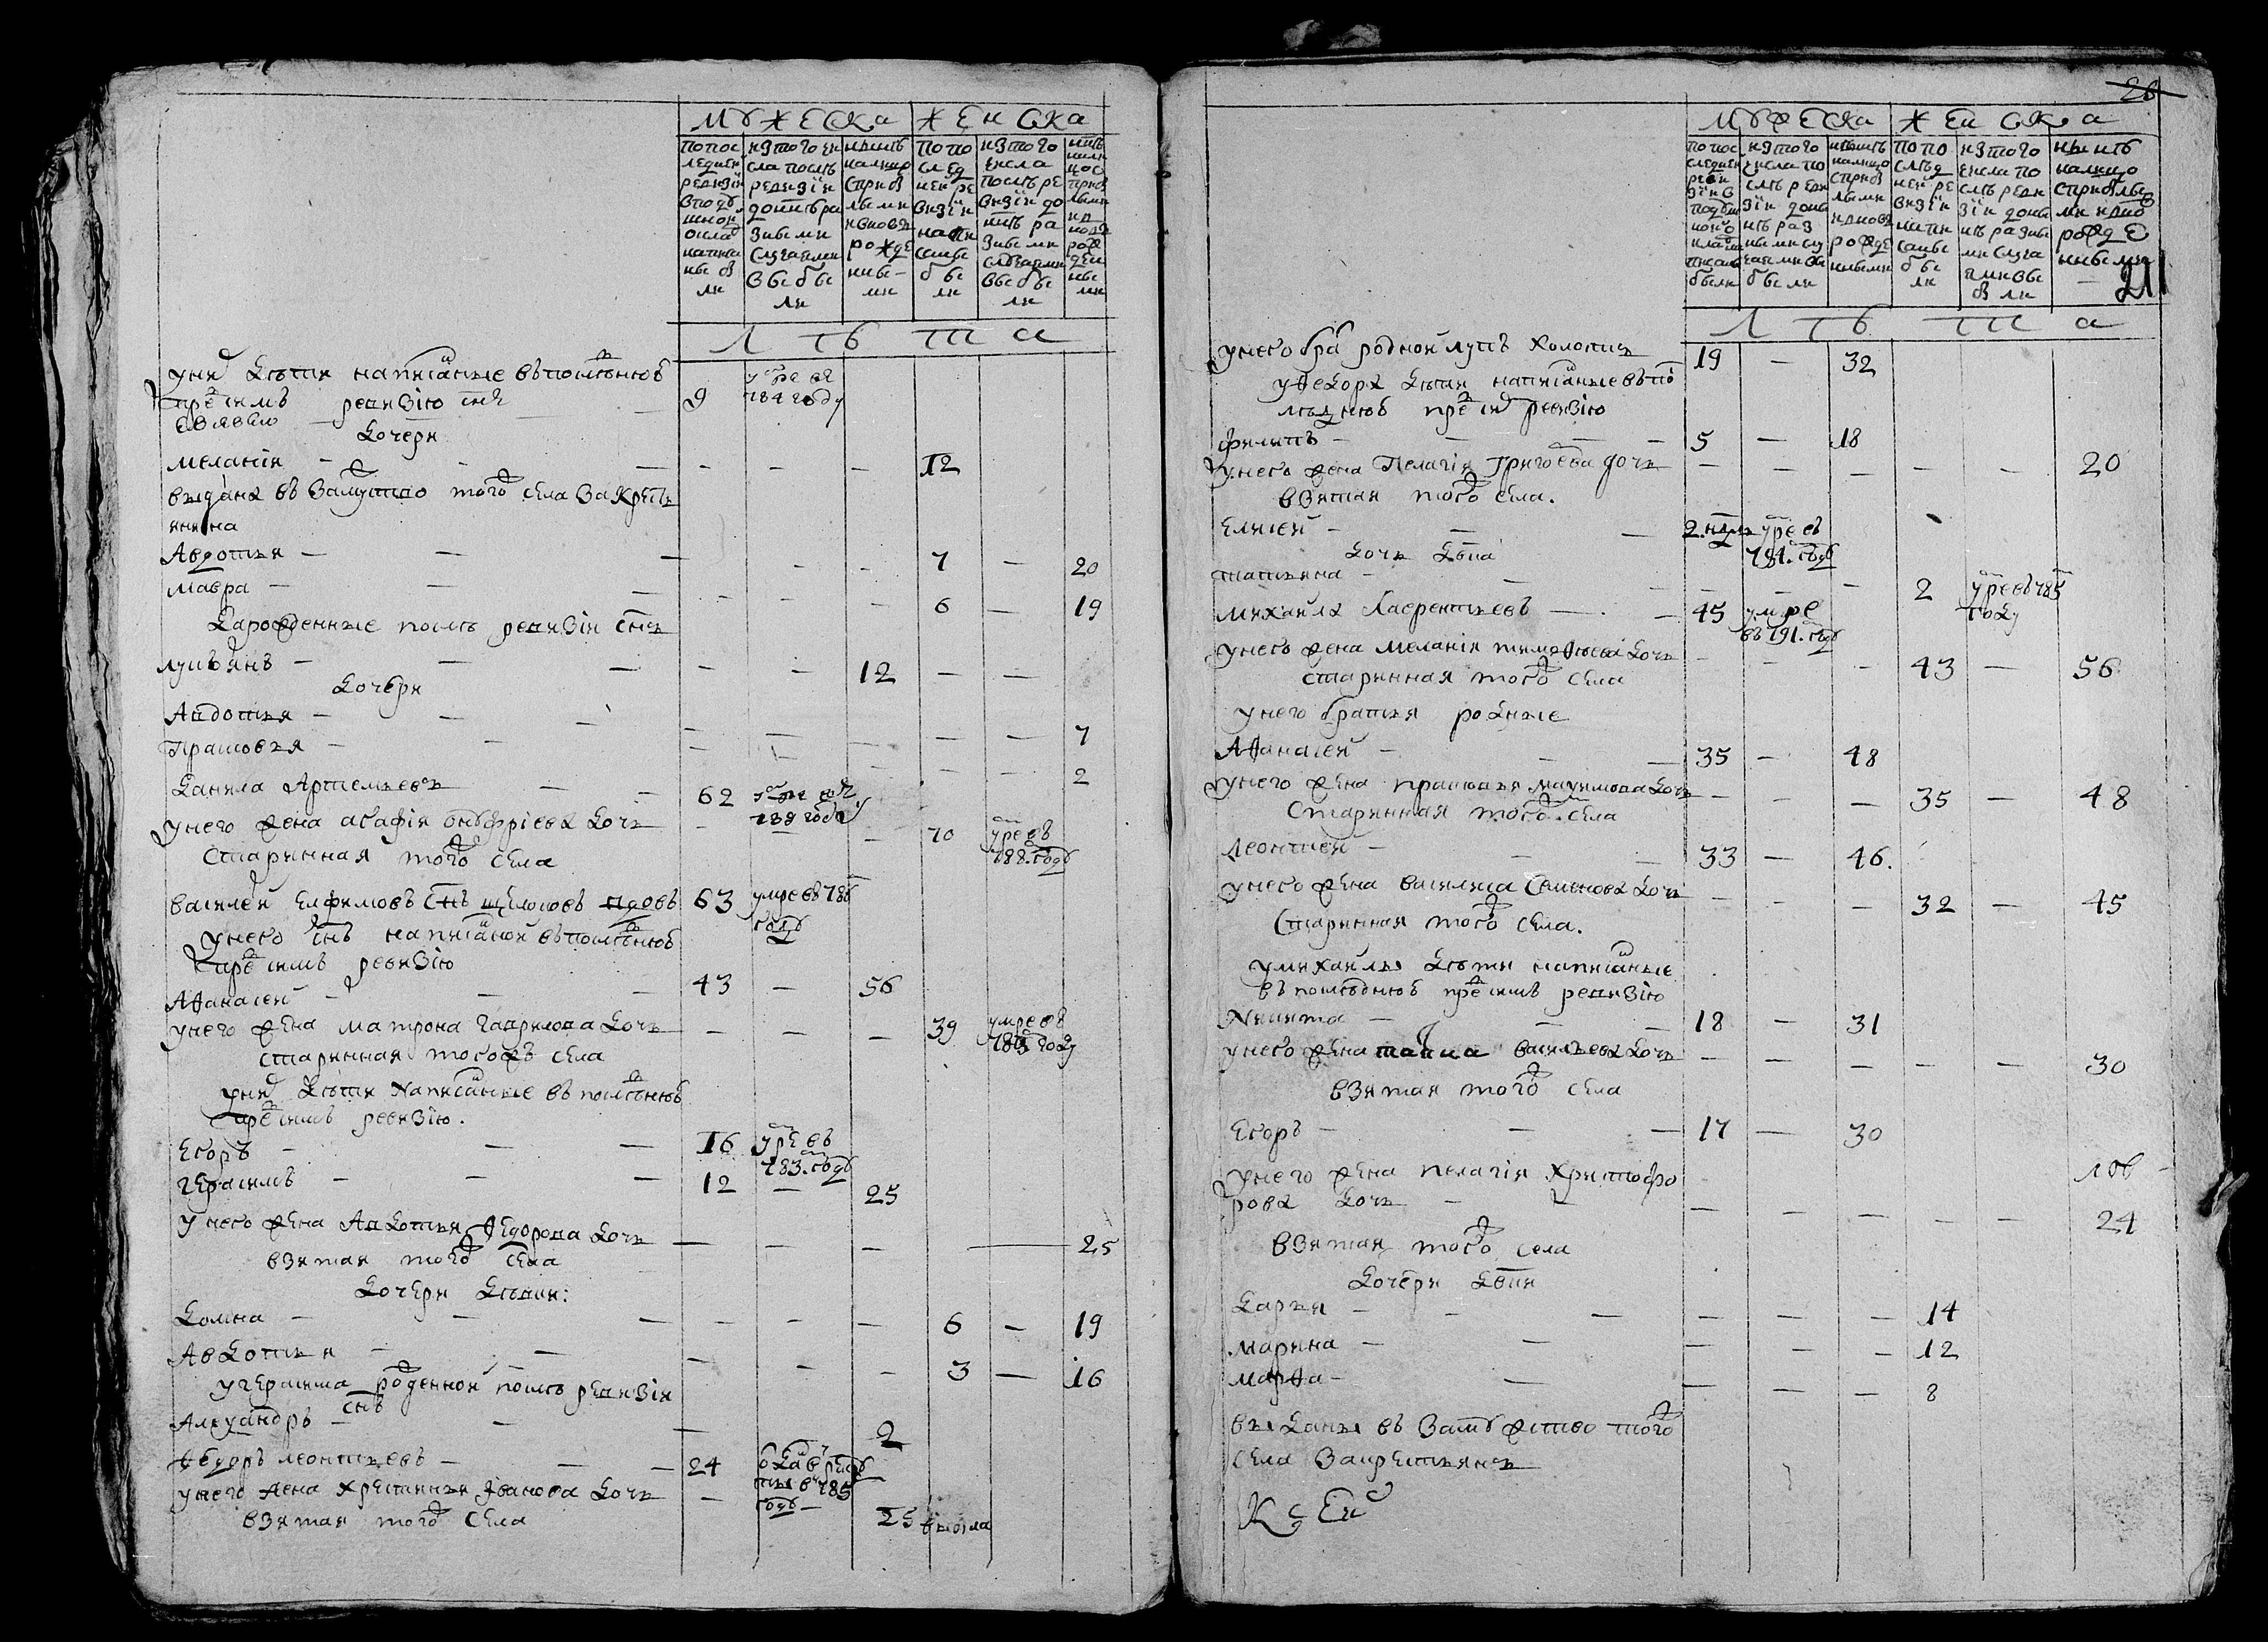 Мужеска Женска
по последней ревизіи в подушной оклад написаны были
из того числа после ревизіи до ныне разными случаями выбыли
ныне налицо с прибылыми и вновь рожденными
по последней ревизіи написаны были
из того числа после ревизіи до ныне разными случаями выбыли
ныне налицо с прибылыми и вновь рожденными
Лѣта
у них дѣти написанные въ последнюю
пред сим ревизію снъ
9 умре въ 784 году
дочери
меланія — — — 12
выдана въ замужство того села за крестьянина
Авдотья — — 7 — 20
мавра — — 6 — 19
Да рожденные после ревизіи снъ
лукьянъ — — 12 — —
дочери
Авдотья — — 7
Прасковья — — 2
Данила Артемьевъ — — 62 умре въ 788 году
у него жена агафія онуфріева дочь — — 70 умре въ 788. году
старинная того села
василей Ефимовъ снъ вдовъ 63 умре въ 786 году
у него снъ написанной въ последнюю
пред симъ ревизію
Афанасей — — 43 — 56
у него жена матрона гаврилова дочь — — — 39 умре въ году
старинная того жъ села
у них дѣти написанные въ последнюю
пред симъ ревизію.
Егоръ — — 16 умре въ 783. году
герасимъ — — 12 — 25
у него жена Авдотья Федорова дочь — — — 25
взятая того села
дочери девки:
Домна — — — 6 — 19
Авдотья — — — 3 — 16
у герасима рожденной после ревизіи
снъ
Александръ — — 2
Федоръ леонтьевъ — — 24 отдан въ рекруты въ 785 году
у него жена Хрестинья Іванова дочь — 25 вышла
взятая того села
26
21
Мужеска Женска
по последней ревизіи в подушной оклад написаны были
из того числа после ревизіи до ныне разными случаями выбыли
ныне налицо с прибылыми и вновь рожденными
по последней ревизіи написаны были
из того числа после ревизіи до ныне разными случаями выбыли
ныне налицо с прибылыми и вновь рожденными
Лѣта
у него брат родной лупъ холостъ 19 — 32
у Федора дѣти написанные въ по
следнюю пред сим ревизію
филипъ — — 5 — 18
у него жена Пелагія Григоева дочь — — — — — 20
взятая того села.
Елисей — — 2. умре въ 781. году
дочь девка
татьяна — — — 2 умре въ 785 году
михаила Лаврентьевъ — — 45 умре въ 791. году
у него жена меланія тимофеева дочь — — — 43 — 56
старинная того села
у него братья родные
Афанасей — — 35 — 48
у него жена прасковья максимова дочь — — — 35 — 48
старинная того села
леонтей — — 33 — 46.
у него жена василиса Семенова дочь — — — 32 — 45
старинная того села.
у михайлы дѣти написанные
въ последнюю пред симъ ревизію
Никита — — 18 — 31
у него жена васильева дочь — — — — — 30
взятая того села
Егоръ — — 17 — 30
у него жена пелагія Христофо
рова дочь — — — — — 24
взятая того села
дочери девки
Дарья — — — — 14
марина — — — — 12
марфа — — — — 8
выданы въ замужство того
села за крестьянъ